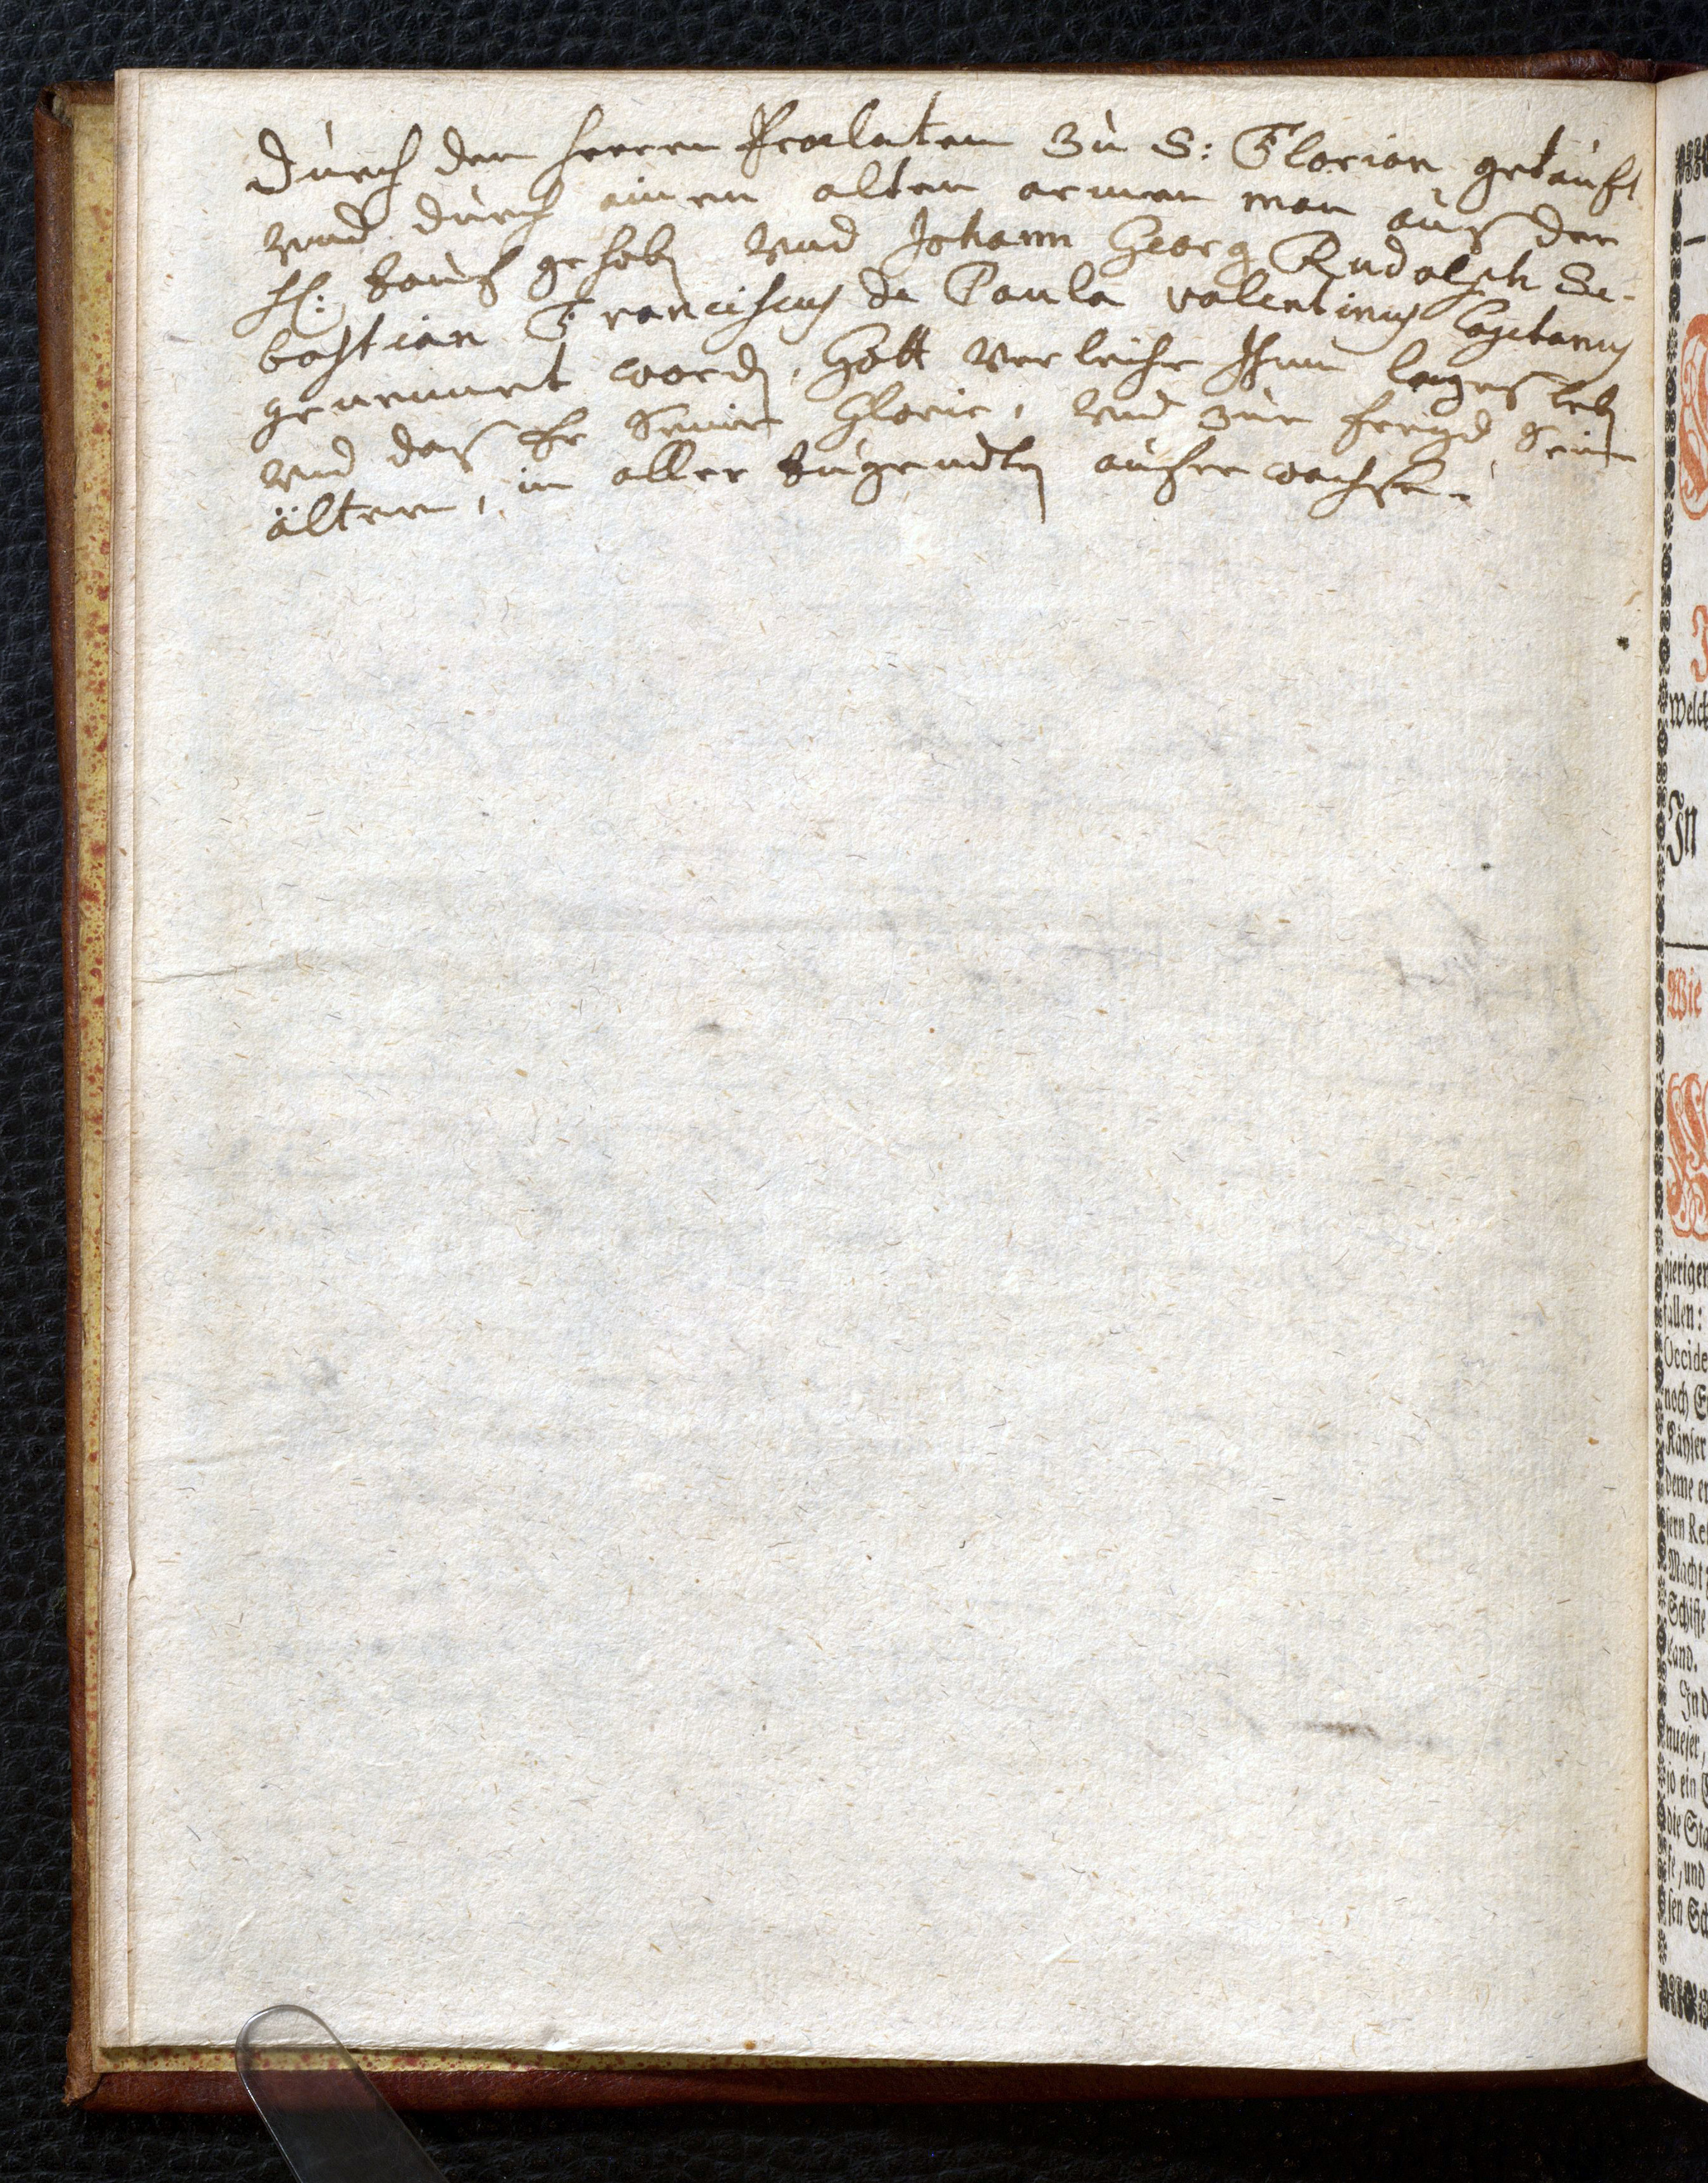 durch den herren Praelaten zu S: Florian getaufft
vnd durch ainen alten armen man auß der
hl: tauff gehobn vnd Johann Georg Rudolph Se-
bastian Franciscus de Paula valentinus Cajetanus
genennet wordn, Gott verleihe Ihme langes lebn
vnd daß Er Seine Glorie, vnd zur freyd Seine
ältern, in aller tugendtn aufferwachse.
Welch
In
Wie
gieriger
fallen:
Occide
noch
Käyser
deme
Macht
Schiffe
Land.
In d
so ein
die Sta
, und
sen Sch